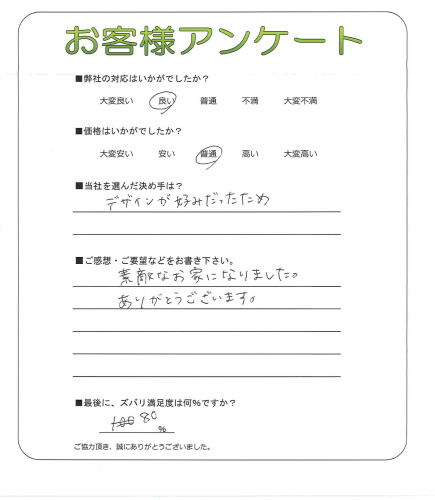 お客様アンケート
■弊社の対応はいかがでしたか？
大変良い 良い 普通 不満 大変不満
■価格はいかがでしたか？
大変安い 安い 普通 高い 大変高い
■当社を選んだ決め手は？
デザインが好みだったため
■ご感想・ご要望などをお書き下さい。
素敵なお家になりました。
ありがとうございます。
■最後に、ズバリ満足度は何%ですか？
100 80
%
ご協力頂き、誠にありがとうございました。